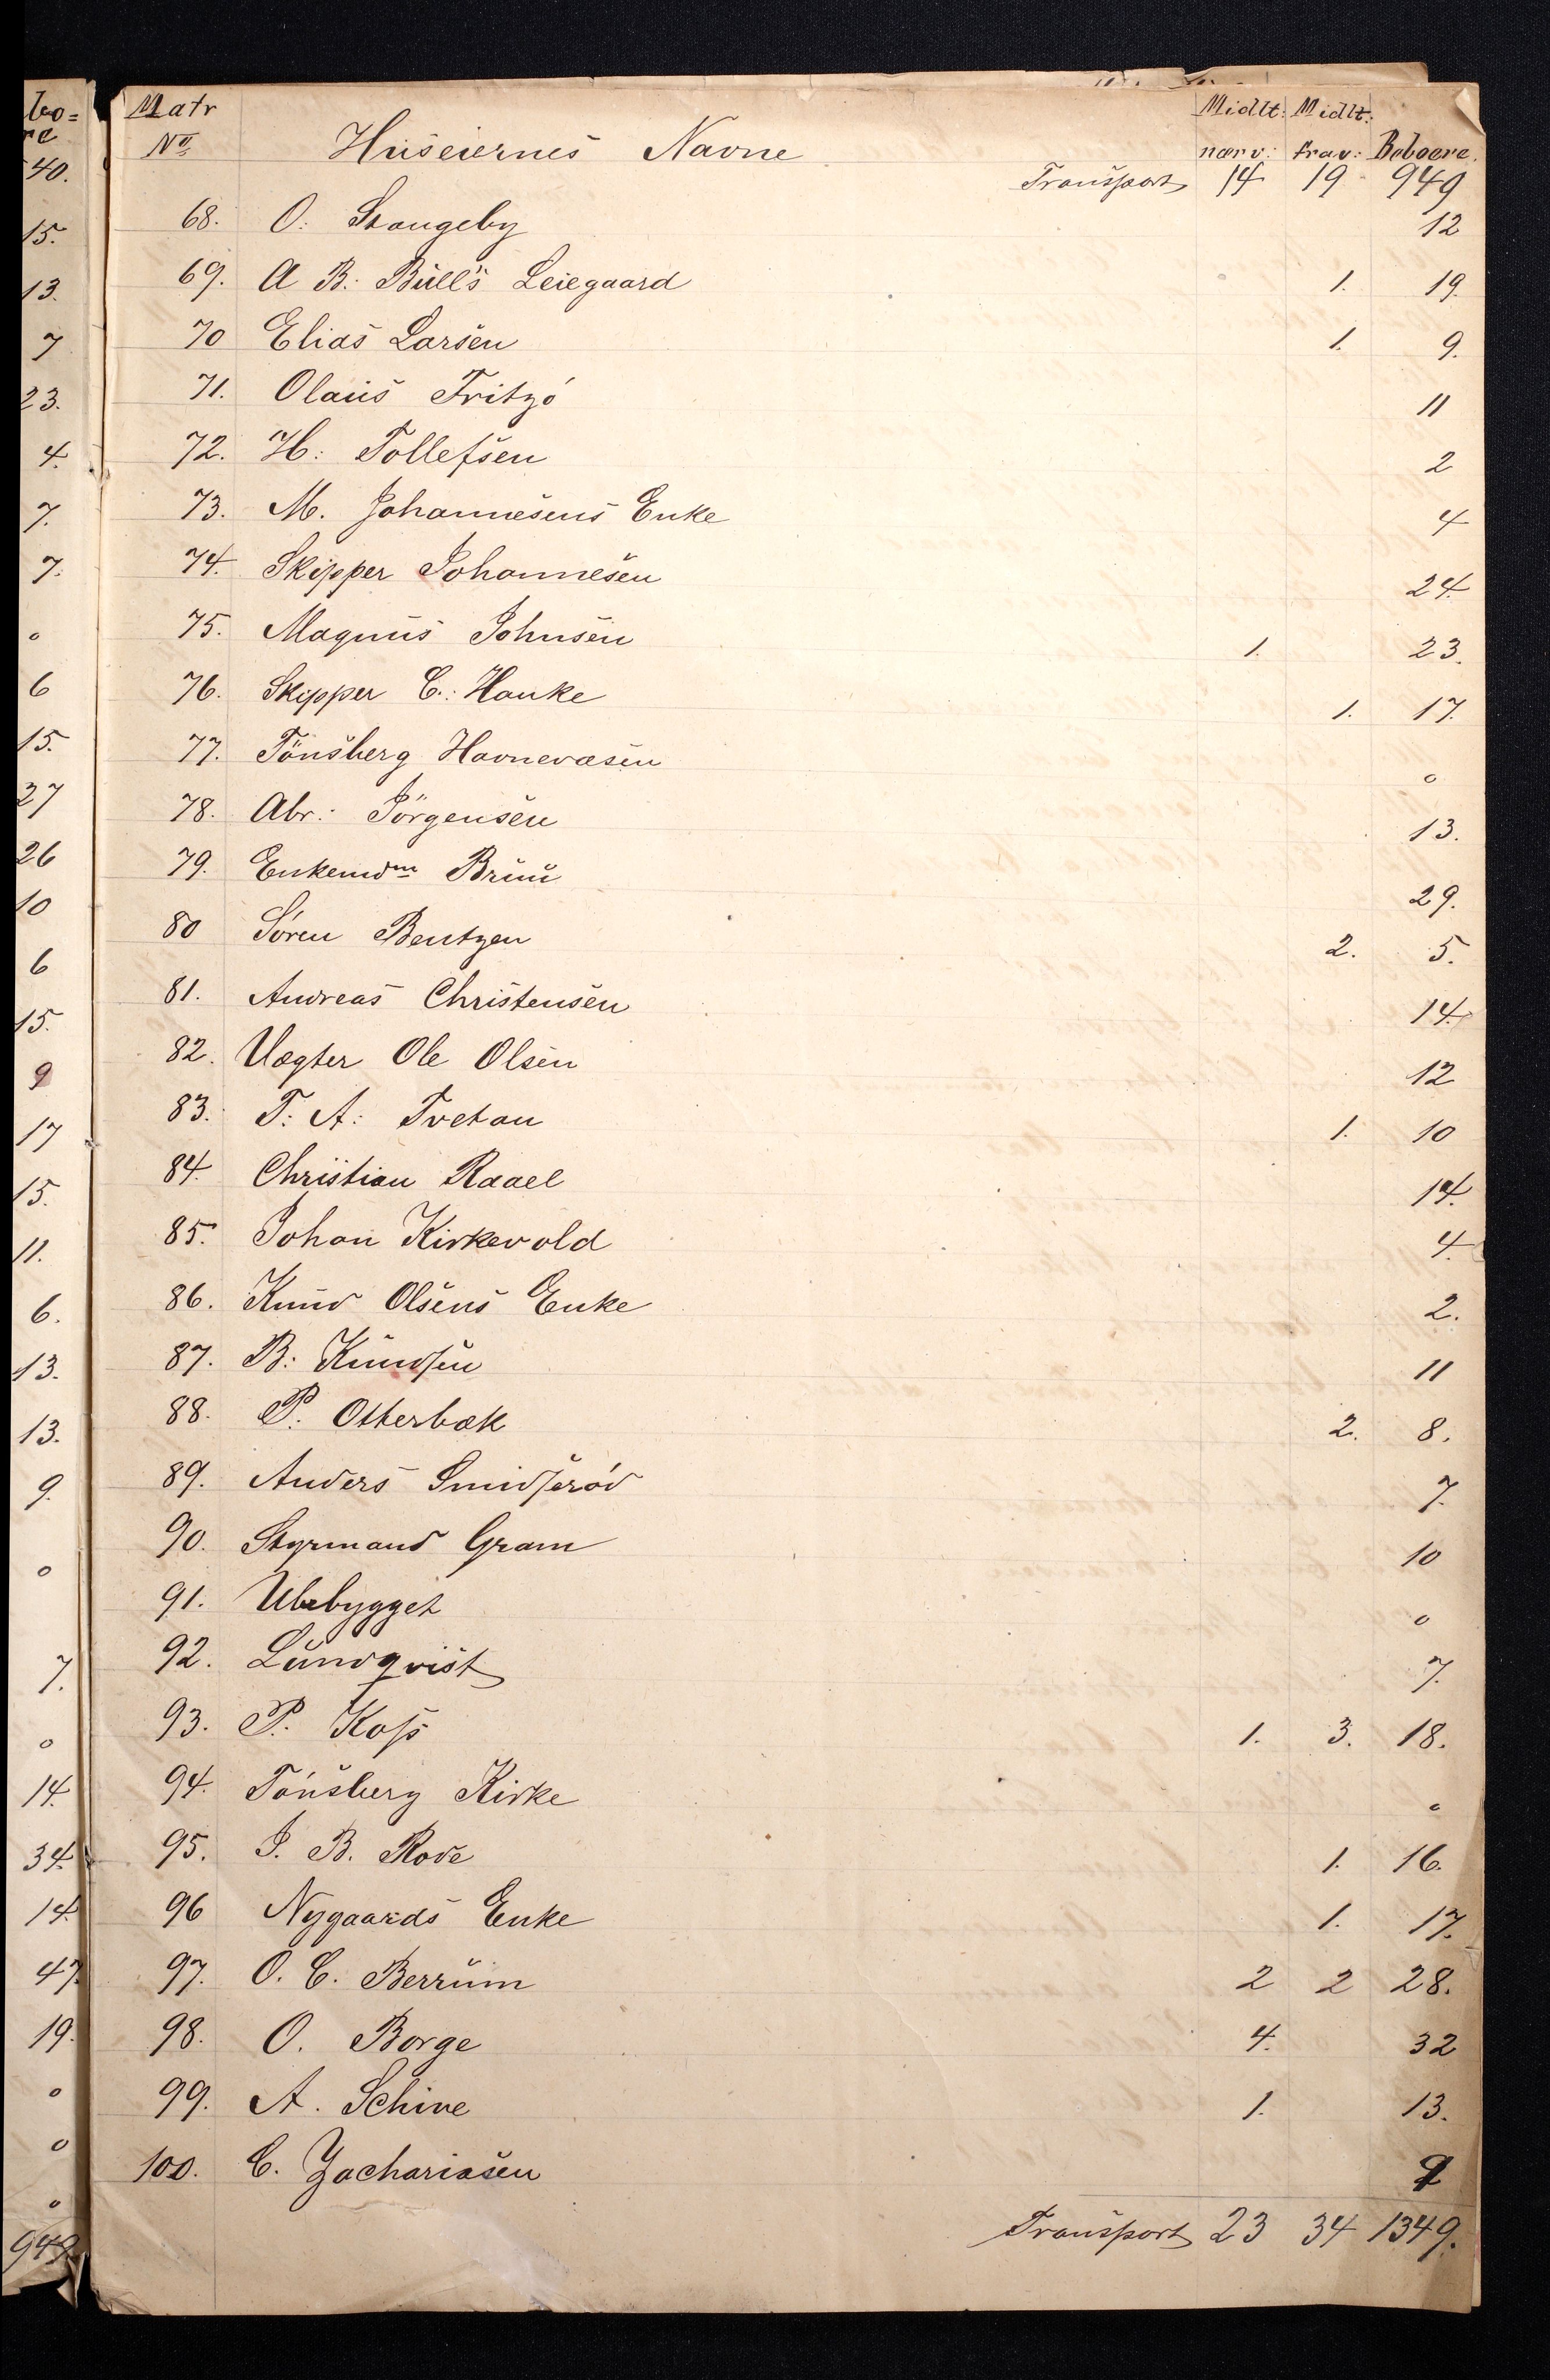 bo=
re
40.
15.
13.
7
23.
4.
7.
7.
0
6
15.
27
26
10
6
15.
9
17
15.
11.
6.
13.
13.
9.
0
7.
0
14.
34.
14.
47.
19.
0
0
0
949.
Matr Midlt: Midlt:
No Huseiernes Navne nærv: frav: Beboere.
Transport 14 19 949
68. O: Stangeby 12
69. A B: Bull's Leiegaard 1. 19.
70 Elias Larsen 1. 9.
71. Olaus Fritzö 11
72. H: Tollefsen 2
73. M. Johannesens Enke 4
74. Skipper Johannesen 24.
75. Magnus Johnsen 1. 23.
76. Skipper C: Hauke 1. 17.
77. Tönsberg Havnevæsen 0
78. Abr: Jörgensen 13.
79. Enkemdm Bruu 29.
80 Sören Bentzen 2. 5.
81. Andreas Christensen 14.
82. Vægter Ole Olsen 12
83. T: A: Tvetan 1. 10
84. Christian Raael 14.
85. Johan Kirkevold 4.
86. Knud Olsens Enke 2.
87. B: Knudsen 11
88. P: Otterbæk 2. 8.
89. Anders Smidsröd 7.
90. Styrmand Gram 10
91. Ubebygget 0
92. Lundqvist 7.
93. P. Koss 1. 3. 18.
94. Tönsberg Kirke 0
95. J. B. Rode 1. 16.
96 Nygaards Enke 1. 17.
97. O. C. Berrum 2 2 28.
98. O. Borge 4. 32
99. A. Schive 1. 13.
100. C. Zachariasen 9
Transport 23 34 1349.